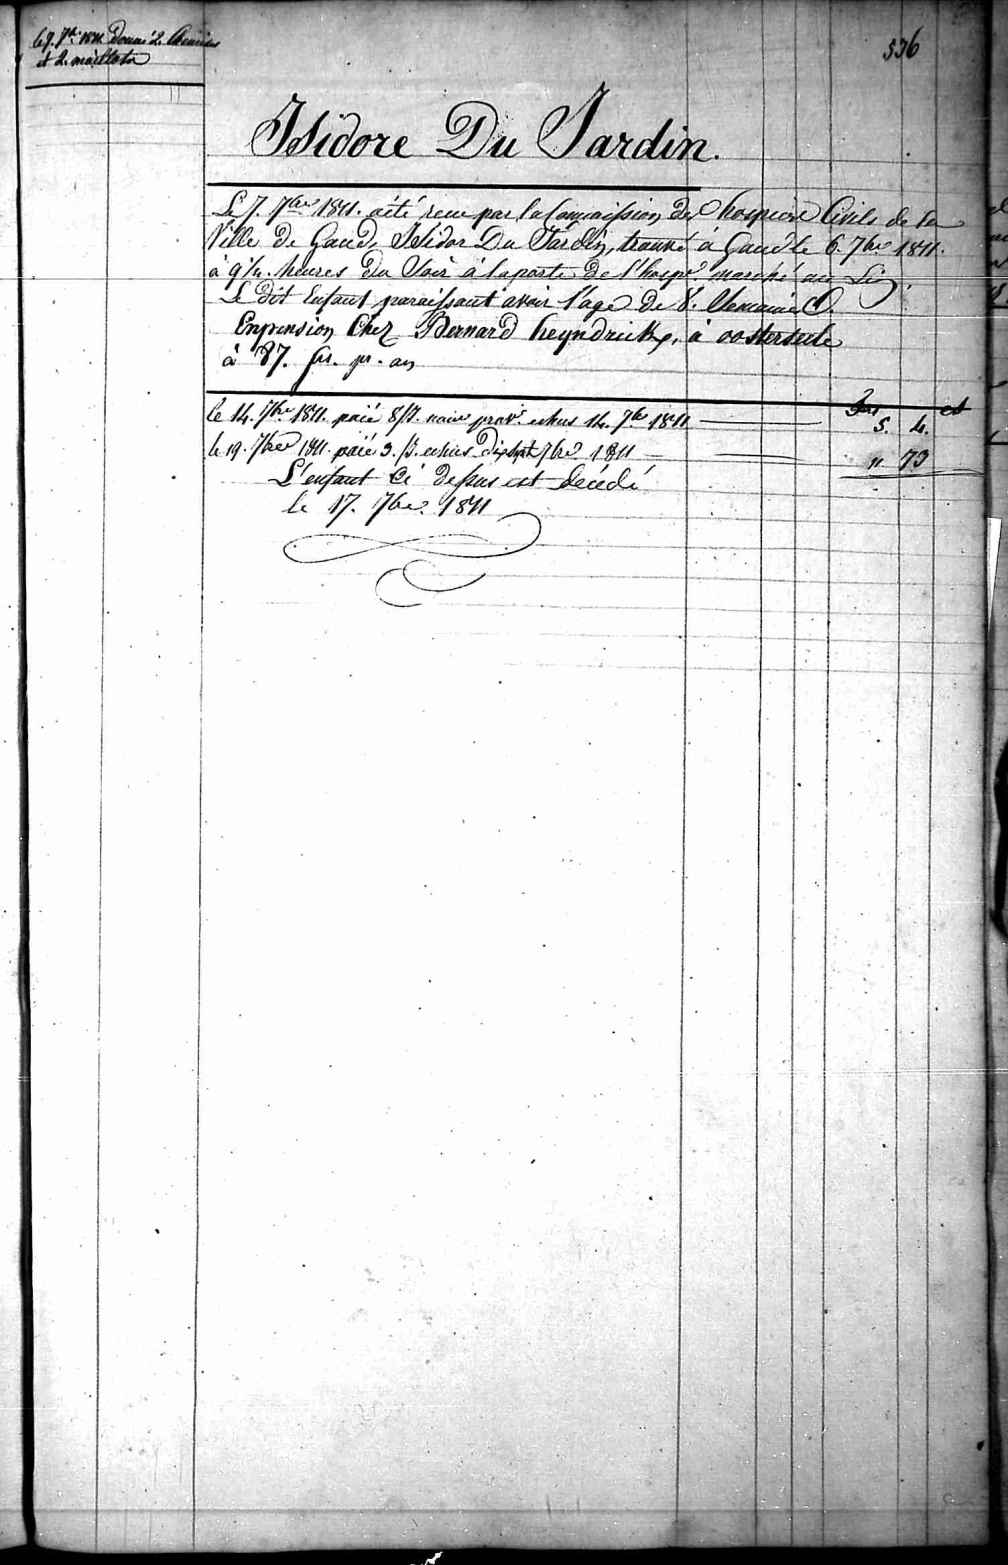 Le 9. 7bre 1811. Donné 2. Chemises
et 2. maillots
336
Isidore Du Jardin.
Le 7. 7bre 1811. aété recu par la Commission des hospices Civils de la
Ville de Gand, Isidor Du Jardin, trouvé à Gand le 6. 7bre 1811.
à 9 1/2. heures du Soir à la porte de l'hospce marché au Lin.
Le dit Enfant paraissant avoir l'age de 8. Semaines.
Enpension Chez Bernard heyndrickx, à oosterseele
à 87. frs. pr. an
frs ct
le 14. 7bre 1811. paié 8/J. echus 14. 7bre 1811 5. 4.
le 19. 7bre 1811. paié 3. /J. echus Dixsept 7bre 1811 " 73
L'enfant Ci dessus est Décédé
le 17. 7bre. 1811